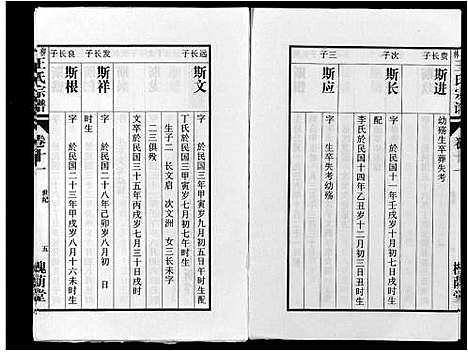 贵长子
斯进
幼殇生卒葬失考
次子
斯长
字 於民国十一年壬戌岁十二月初七日時生配
李氏於民国十四年乙丑岁十二月初三日丑時生
三子
斯应
字 生卒失考幼殇
远长子
斯文
字 於民国三年甲寅岁九月初五日午時生配
丁氏於民国三年甲寅岁七月初七日午時生
生子二 长文启 次文洲 女三长未字
二三俱殁
文卒於民国三十五年丙戌岁七月三十日戌時
发长子
斯祥
字 於民国二十八年己卯岁八月初 日
時生
良长子
斯根
字 於民国二十三年甲戌岁八月十六未時生
王氏宗谱
卷十一
世纪
五
槐荫堂